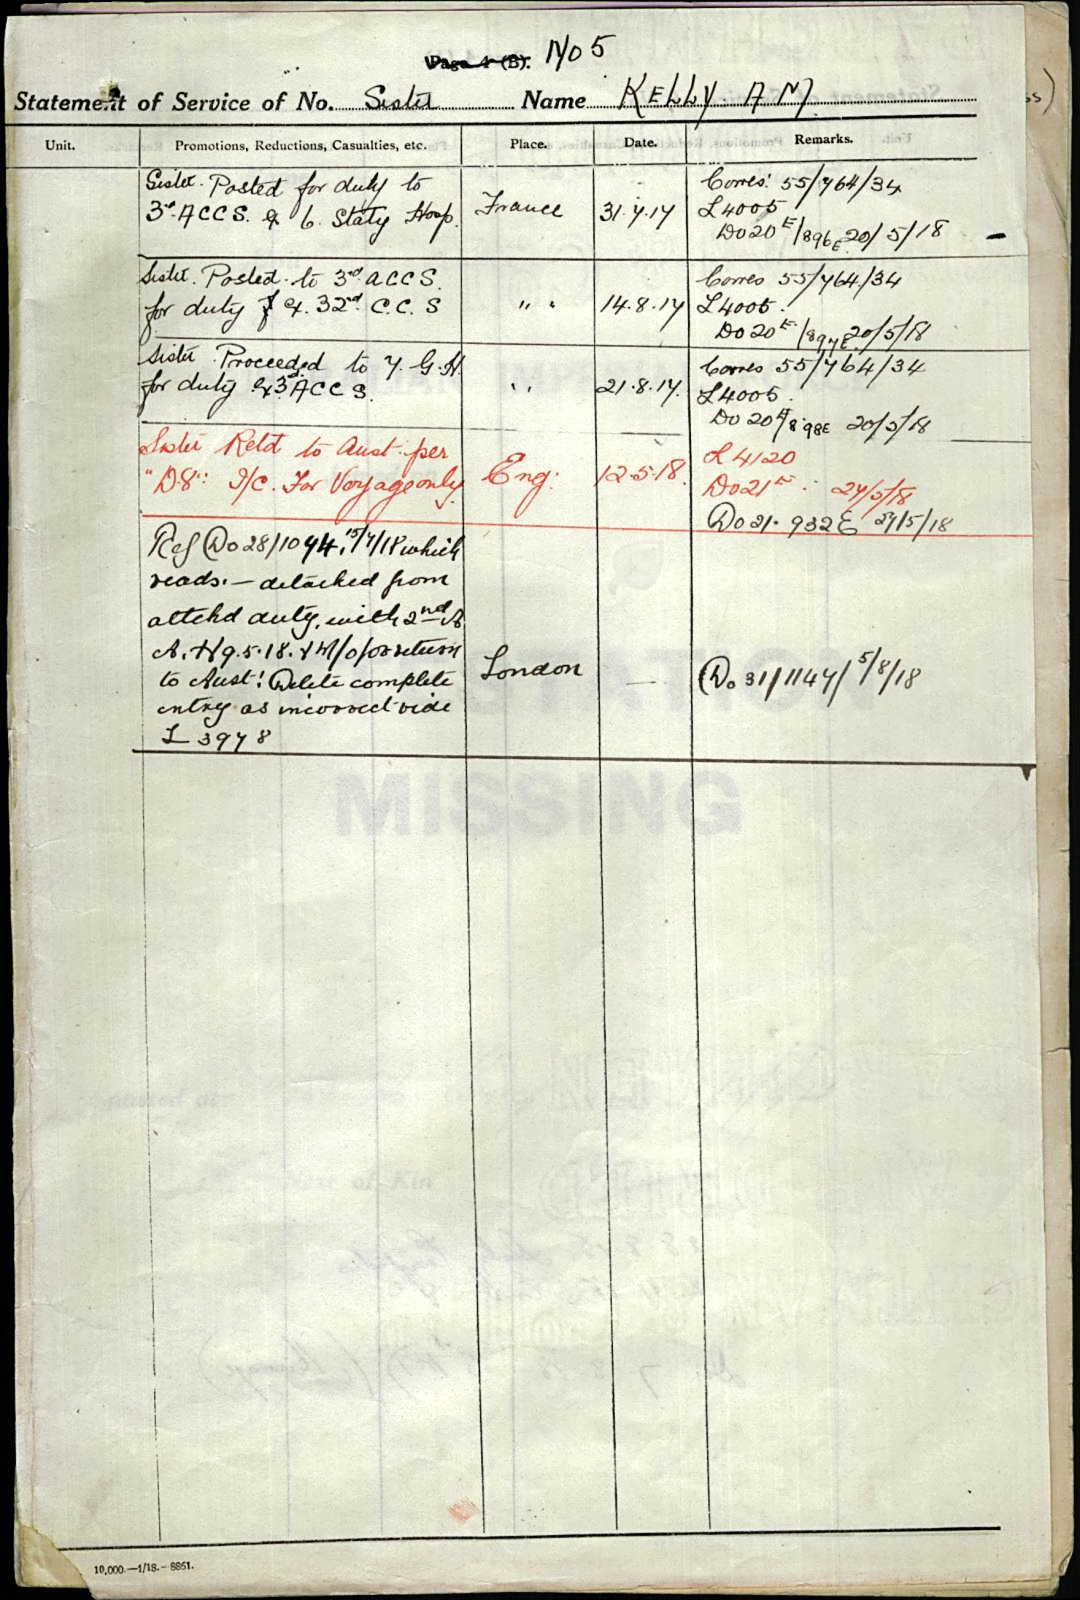 Page 4 (B). No 5
Statement of Service of No. Sister Name KELLY A M
Unit. Promotions, Reductions, Casualties, etc. Place. Date. Remarks.
Sister. Posted for duty to
3rd ACCS. ex 6. Staty Hosp.
France
31.7.17
Corres: 55/764/34
L4005
Do 20E/896E 20/5/18
Sister. Posted to 3rd ACCS.
for duty ex. 32nd C.C.S
" "
14.8.17
Corres 55/764/34
L4005.
Do 20E/897E 20/5/18
Sister Proceeded to 7. G.H.
for duty ex 3rd ACCS.
" "
21.8.17.
Corres 55/764/34
L4005.
Do 20E/898E 20/5/18
Sister Retd to Aust. per
"D.8": I/C. For Voyage only.
Eng:
12.5.18.
L 4120
Do 21E : 27/5/18
Do 21. 932E 27/5/18
Ref Do 28/1074, 15/7/18 which
reads. — detached from
attchd duty, with 2nd A.
A. H 9.5.18. & M/o/or return
to Aust! Delete complete
entry as incorrect vide
L 3978
London
—
Do 31/1147/ 5/8/18
MISSING
10,000.—1/18.—8851.